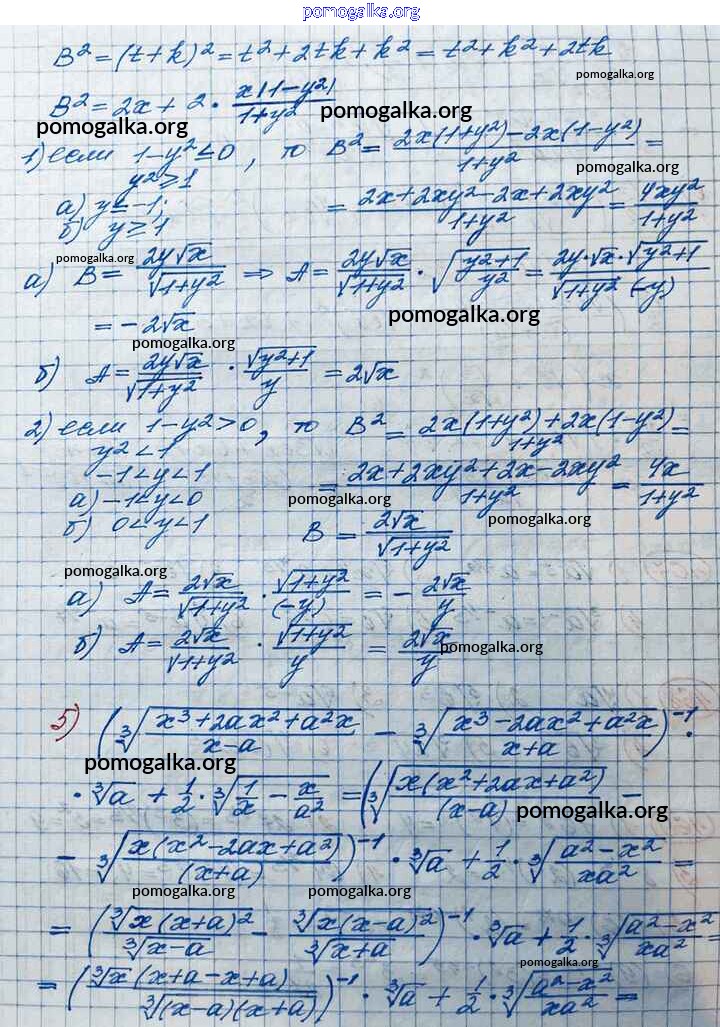 pomogalka.org
B² = (t+k)² = t² + 2tk + k² = t² + k² + 2tk
pomogalka.org
B² = 2x + 2 · x(1-y²)/(1+y²)
pomogalka.org pomogalka.org
1) если 1-y² ≤ 0, то B² = (2x(1+y²) - 2x(1-y²))/(1+y²) =
y² ≥ 1 pomogalka.org
а) y ≤ -1; = (2x + 2xy² - 2x + 2xy²)/(1+y²) = 4xy²/(1+y²)
б) y ≥ 1
pomogalka.org
а) B = 2y√x/√(1+y²) ⇒ A = 2y√x/√(1+y²) · √((y²+1)/y²) = 2y·√x·√(y²+1)/(√(1+y²)(-y))
= -2√x pomogalka.org
pomogalka.org
б) A = 2y√x/√(1+y²) · √(y²+1)/y = 2√x
2) если 1-y² > 0, то B² = (2x(1+y²) + 2x(1-y²))/(1+y²) =
y² < 1
-1 < y < 1 = (2x + 2xy² + 2x - 2xy²)/(1+y²) = 4x/(1+y²)
а) -1 < y < 0 pomogalka.org
б) 0 < y < 1 B = 2√x/√(1+y²) pomogalka.org
pomogalka.org
а) A = 2√x/√(1+y²) · √(1+y²)/(-y) = - 2√x/y
б) A = 2√x/√(1+y²) · √(1+y²)/y = 2√x/y pomogalka.org
5) (∛((x³+2ax²+a²x)/(x-a)) - ∛((x³-2ax²+a²x)/(x+a)))⁻¹ ·
pomogalka.org
· ∛a + 1/2 · ∛(1/x - x/a²) = (∛(x(x²+2ax+a²)/(x-a)) -
pomogalka.org
- ∛(x(x²-2ax+a²)/(x+a)))⁻¹ · ∛a + 1/2 · ∛((a²-x²)/(xa²)) =
pomogalka.org pomogalka.org
= (∛(x(x+a)²)/∛(x-a) - ∛(x(x-a)²)/∛(x+a))⁻¹ · ∛a + 1/2 · ∛((a²-x²)/(xa²)) =
pomogalka.org
= (∛x(x+a-x+a)/∛((x-a)(x+a)))⁻¹ · ∛a + 1/2 · ∛((a²-x²)/(xa²)) =